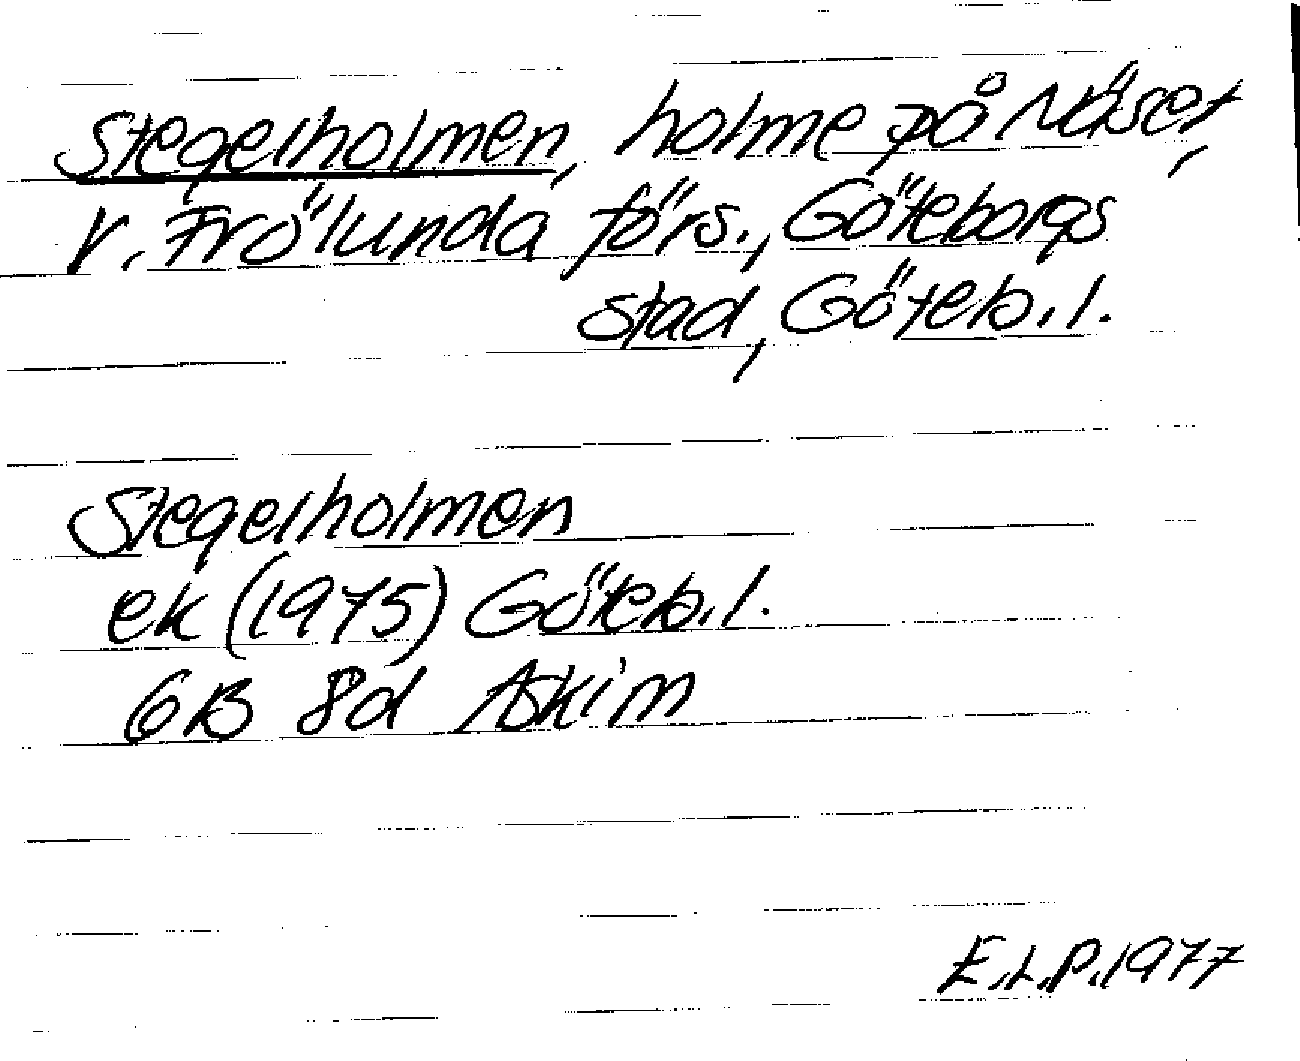 Stegelholmen, holme på Näset,
V. Frölunda förs., Göteborgs
stad, Göteb. l.
Stegelholmen
ek (1975) Göteb. l.
6B 8d Askim
E.L.P. 1977